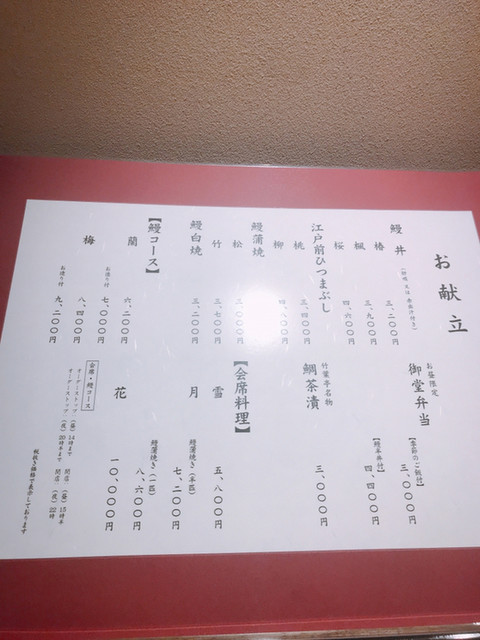 お献立
鰻丼
(肝吸又は赤出汁付き)
椿 三、二〇〇円
楓 三、九〇〇円
桜 四、六〇〇円
江戸前ひつまぶし
桃 三、四〇〇円
柳 四、八〇〇円
鰻蒲焼
松 三、〇〇〇円
竹 三、七〇〇円
鰻白焼 三、二〇〇円
【鰻コース】
蘭 六、二〇〇円
お造り付 七、〇〇〇円
梅 八、四〇〇円
お造り付 九、二〇〇円
お昼限定
御堂弁当
【季節のご飯付】
三、〇〇〇円
【鰻半丼付】
四、四〇〇円
竹葉亭名物
鯛茶漬 三、〇〇〇円
【会席料理】
雪 五、八〇〇円
月 鰻蒲焼き(半匹)
七、二〇〇円
鰻蒲焼き(一匹)
八、六〇〇円
花 一〇、〇〇〇円
会席・鰻コース
オーダーストップ(昼)14時まで 閉店(昼)15時半
オーダーストップ(夜)20時半まで 閉店(夜)22時
税抜き価格で表示しております